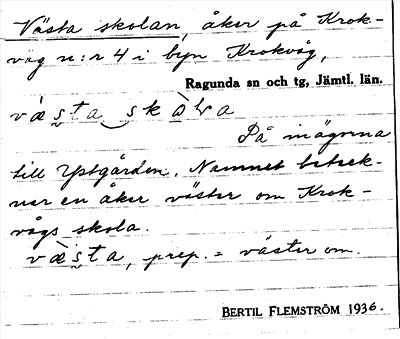 Västa skolan, åker på Krok-
våg n:r 4 i byn Krokvåg,
Ragunda sn och tg, Jämtl. län.
På inägorna
till Ystgården. Namnet beteck-
nar en åker väster om Krok-
vågs skola.
prep. = väster om.
BERTIL FLEMSTRÖM 1936.